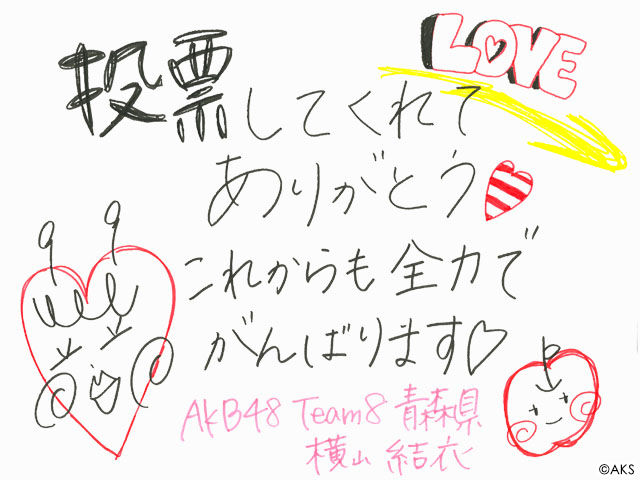 LOVE
投票してくれて
ありがとう
これからも全力で
がんばります♡
AKB48 Team8 青森県
横山 結衣
©AKS